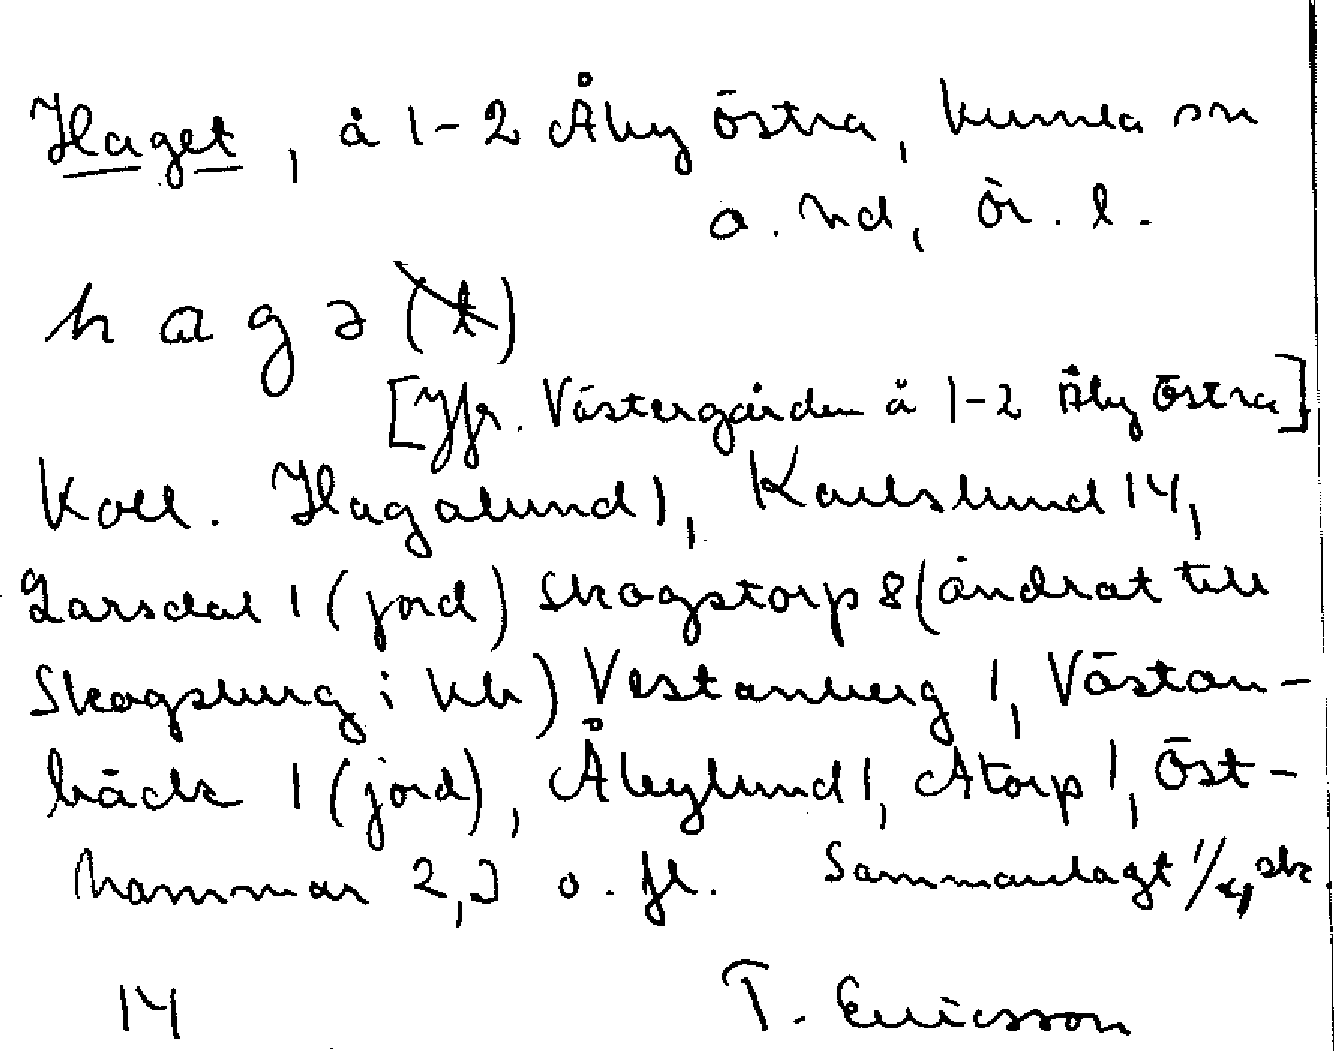 Haget, å 1-2 Åby östra, Kumla sn
o. hd, Ör. l.
h a g ə (t)
[Jfr. Västergården å 1-2 Åby Östra]
Koll. Hagalund 1, Karlslund 14,
Larsdal 1 (jord) Skogstorp 8 (ändrat till
Skogsberg i kb) Vestanberg 1, Västan-
bäck 1 (jord), Åbylund 1, Atorp 1, Öst-
hammar 2,3 o. fl. Sammanlagt 1/4 sk.
14 T. Ericsson